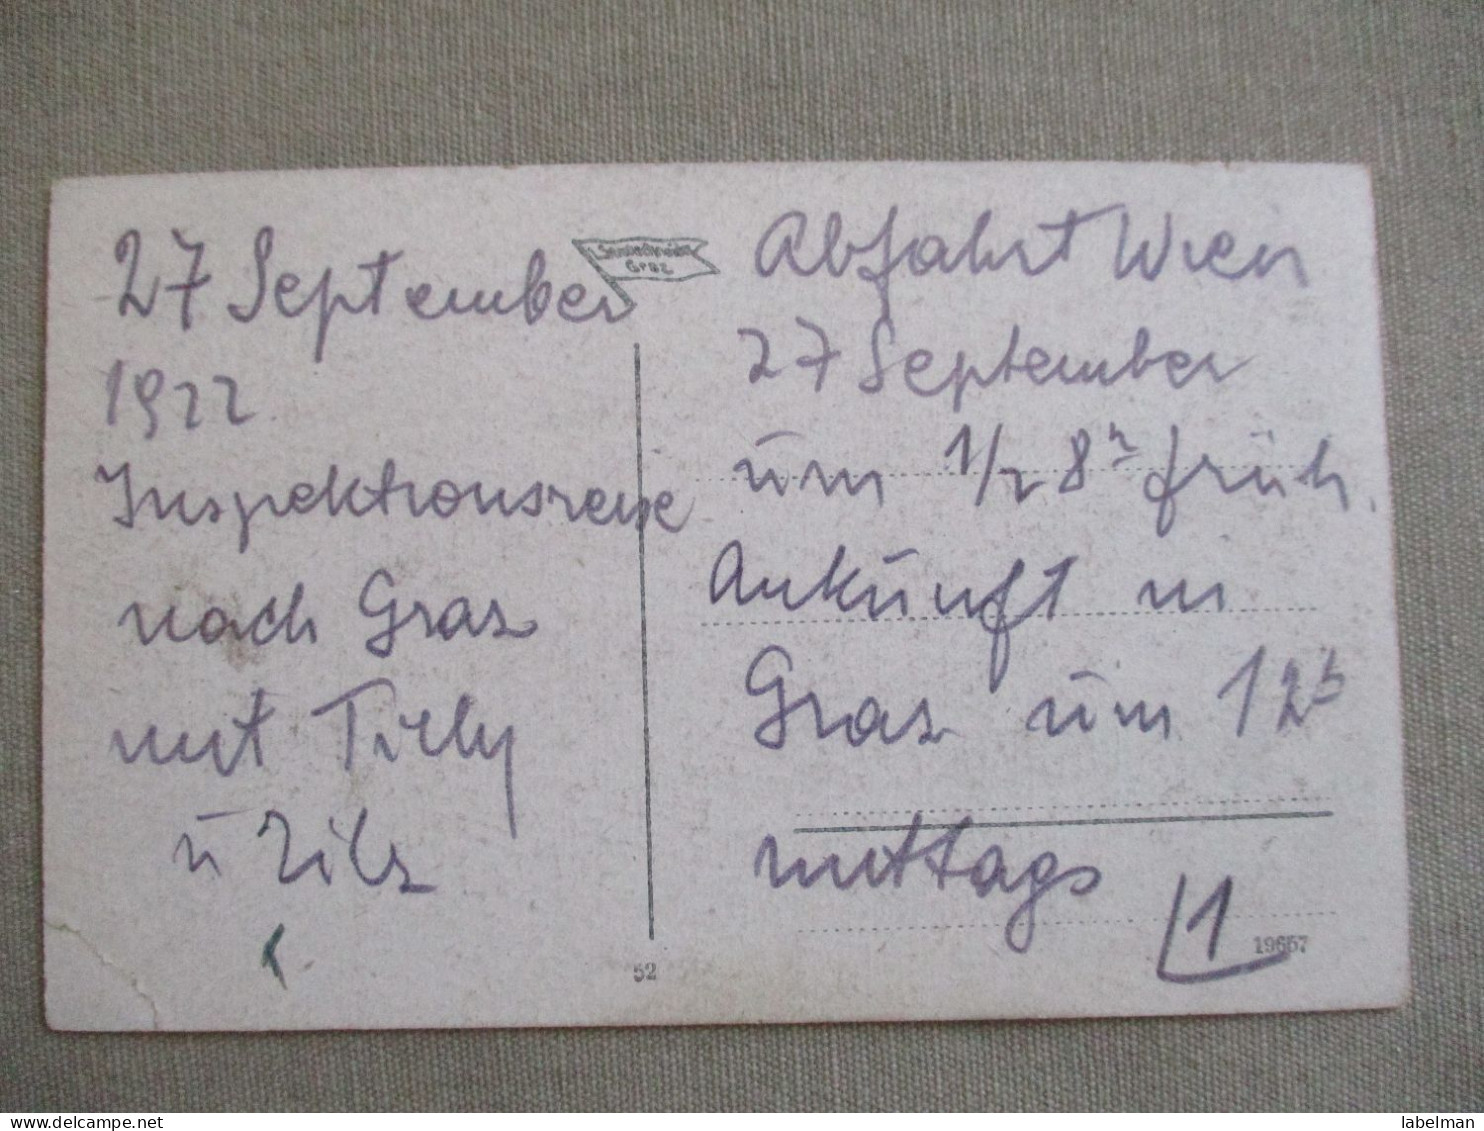 27 September
1922
Inspektionsreise
nach Graz
mit Tilly
u
Graz
Abfahrt Wien
27 September
um 1/2 8 früh.
Ankunft in
Graz um 12
mittags
1
52
19657
delcampe.net
labelman